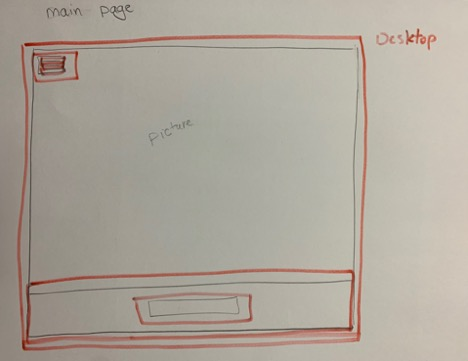 main page
Desktop
picture